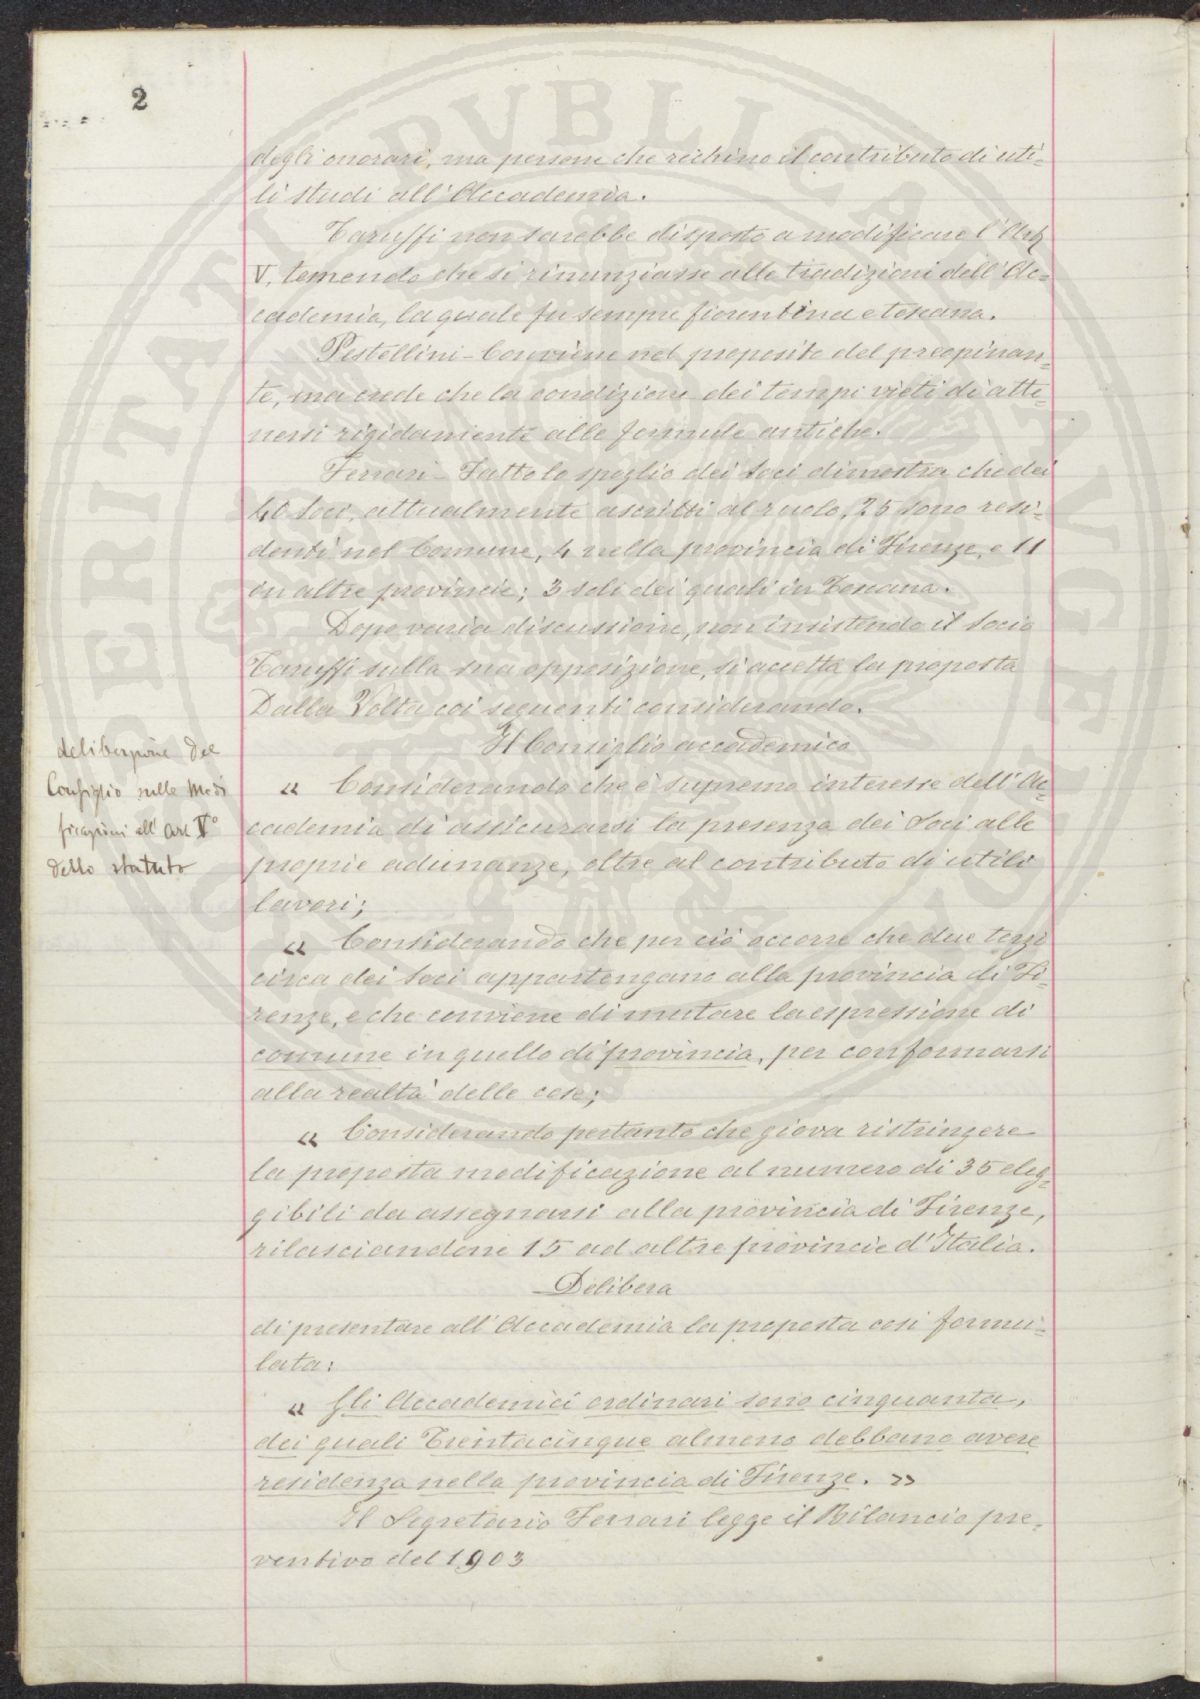 2
degli onorari, ma persone che rechino il contributo di uti-
li studi all'Accademia.
Taruffi non sarebbe disposto a modificare l'Art
V, temendo che si rinunziasse alle tradizioni dell'Ac-
cademia, la quale fu sempre fiorentina e toscana.
Pestellini - Conviene nel proposito del preopinan-
te, ma crede che la condizione dei tempi vieti di atte-
nersi rigidamente alle formule antiche.
Ferrari - Fatto lo spoglio dei Soci dimostra che dei
40 Soci, attualmente ascritti al ruolo, 25 sono resi-
denti nel Comune, 4 nella provincia di Firenze, e 11
in altre provincie; 3 soli dei quali in Toscana.
Dopo varia discussione, non insistendo il Socio
Taruffi sulla sua opposizione, si accetta la proposta
Dalla Volta coi seguenti considerando.
Il Consiglio accademico
deliberazione del
Consiglio sulle Modi
ficazioni all'Art V°
dello statuto
« Considerando che è supremo interesse dell'Ac-
cademia di assicurarsi la presenza dei Soci alle
proprie adunanze, oltre al contributo di utili
lavori;
« Considerando che per ciò occorre che due terzi
circa dei Soci appartengano alla provincia di Fi-
renze, e che conviene di mutare la espressione di
comune in quello di provincia, per conformarsi
alla realtà delle cose;
« Considerando pertanto che giova ristringere
la proposta modificazione al numero di 35 eleg-
gibili da assegnarsi alla provincia di Firenze,
rilasciandone 15 ad altre provincie d'Italia.
Delibera
di presentare all'Accademia la proposta così formu-
lata:
« Gli Accademici ordinari sono cinquanta,
dei quali Trentacinque almeno debbano avere
residenza nella provincia di Firenze. »
Il Segretario Ferrari legge il Bilancio pre-
ventivo del 1903